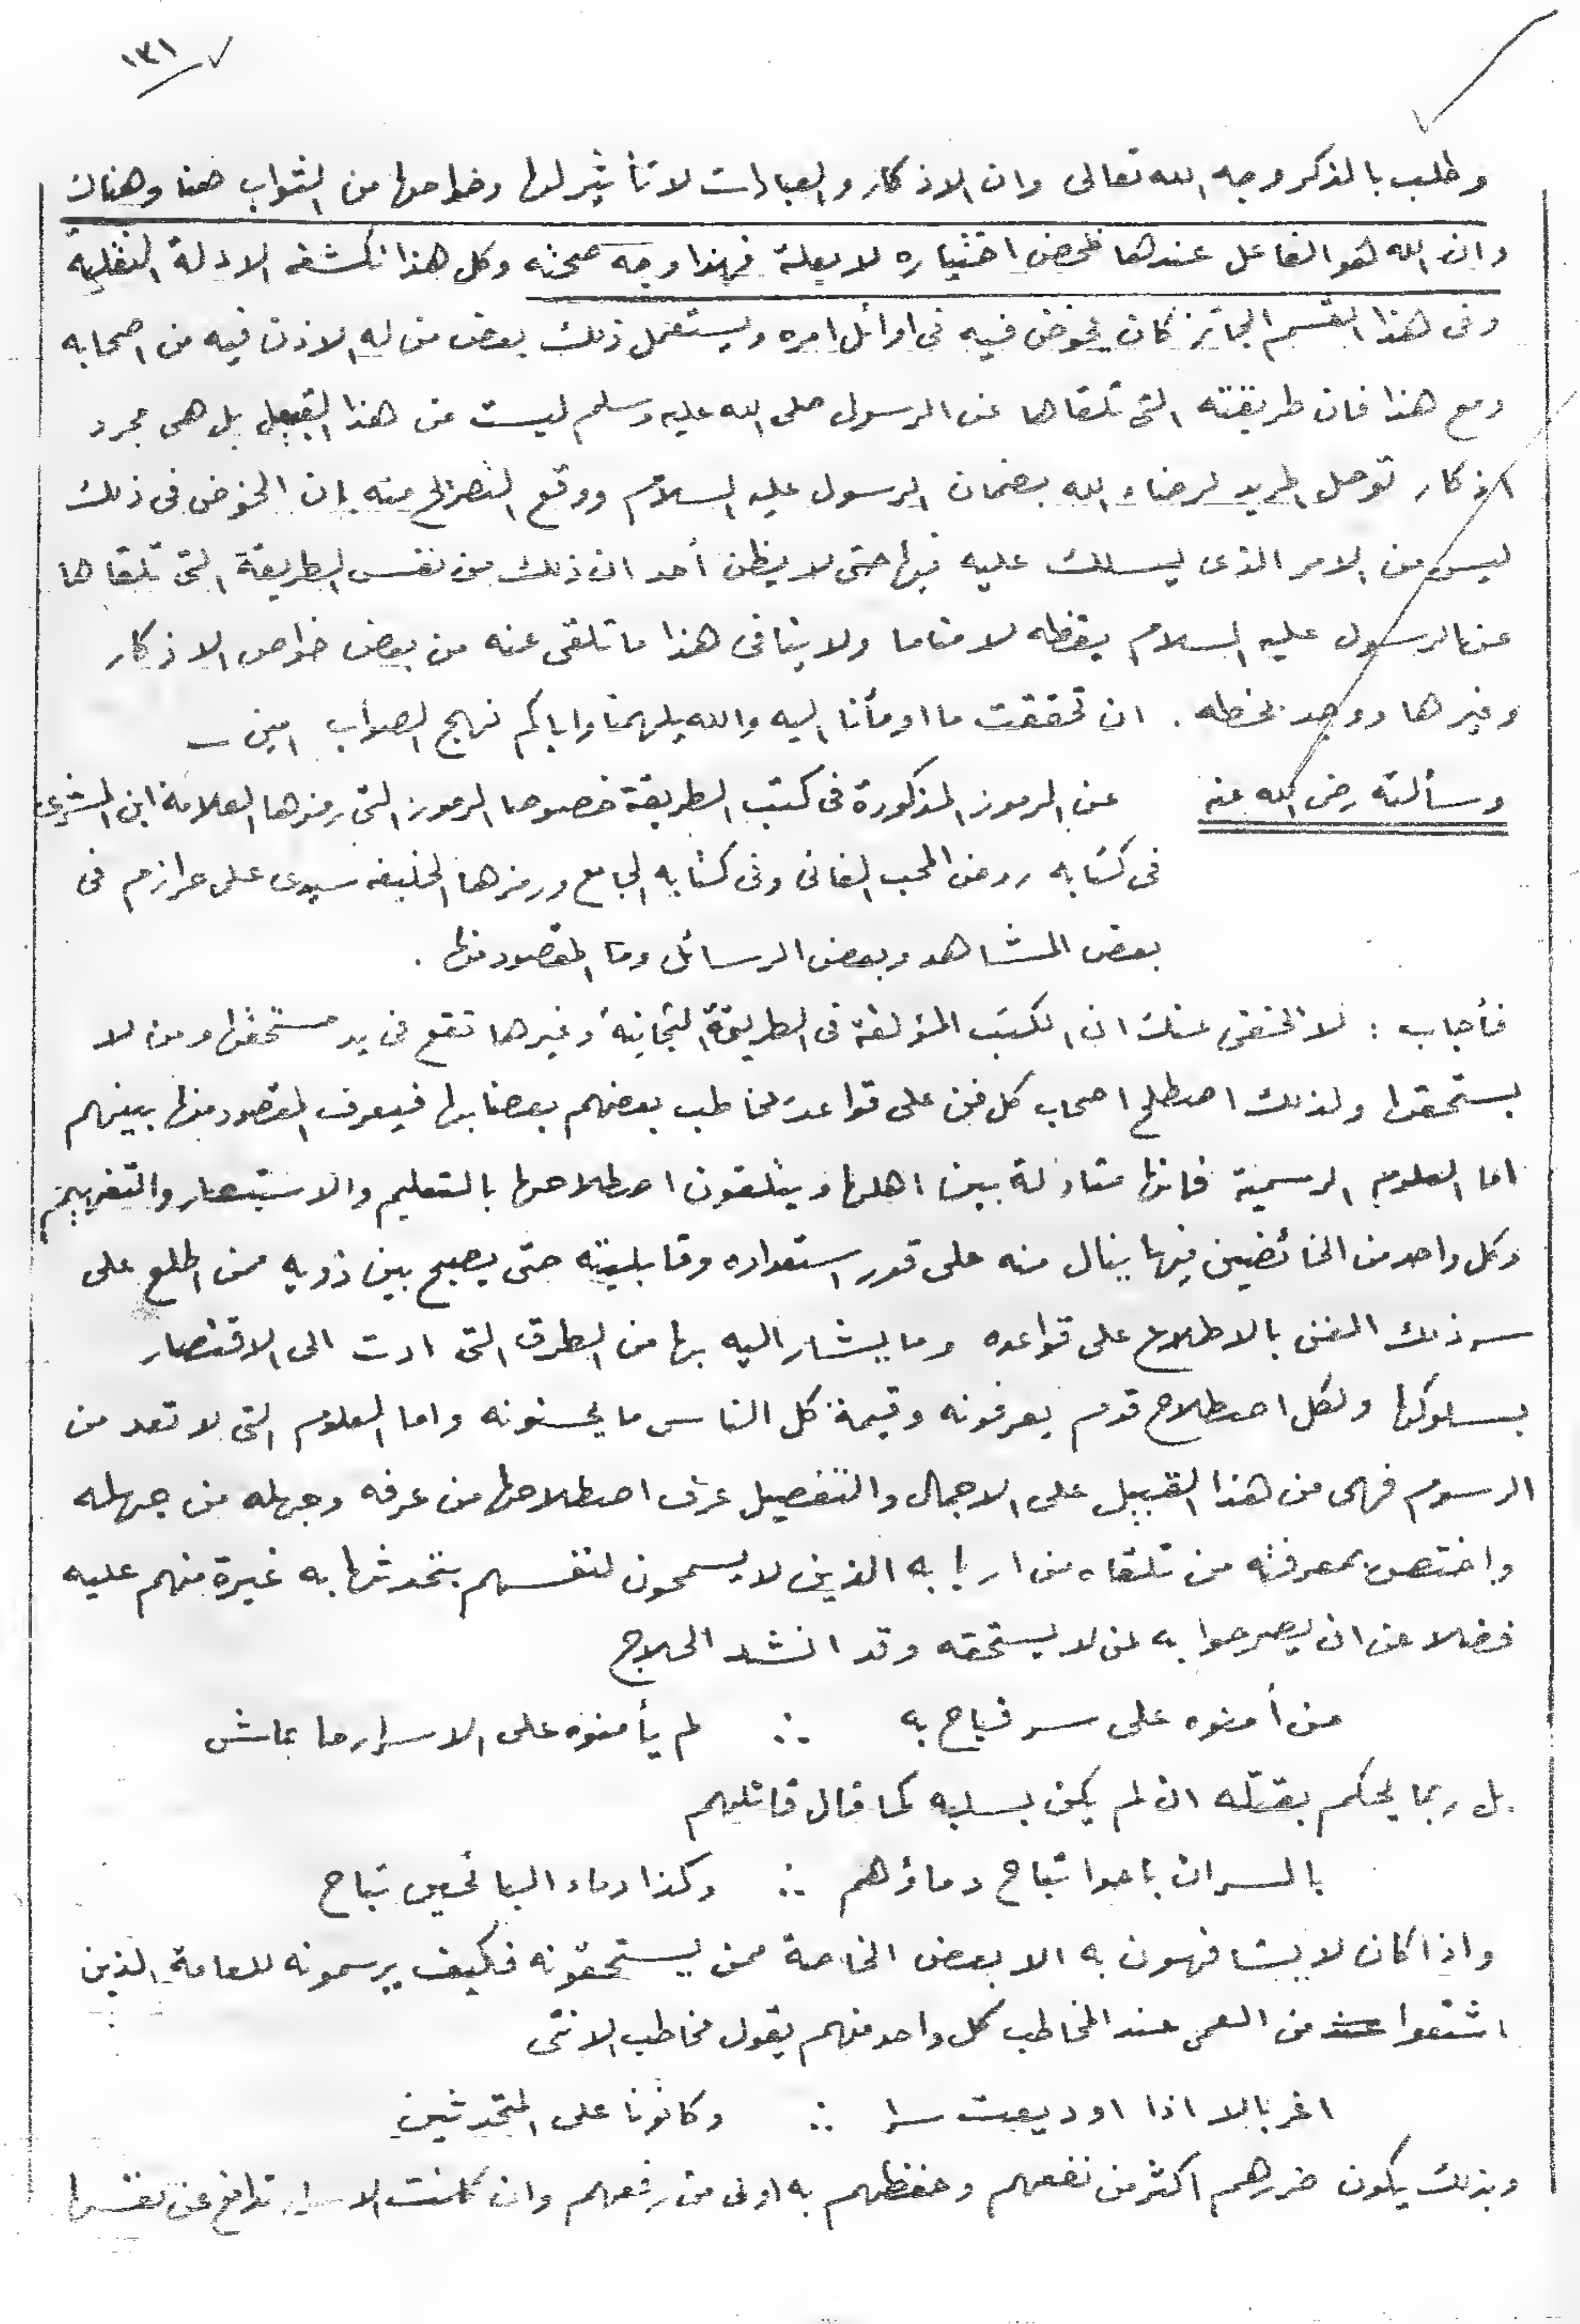 ١٣١
وطلب بالذكر وجه الله تعالى وان الاذكار والعبادات لا تأثير لها وخواصها من الثواب هنا وهناك
وان الله هو الفاعل عندها بمحض اختياره لا بعلة فهذا وجه صحته وكل هذا تكشفه الادلة النقلية
وفى هذا القسم الجائز كان يخوض فيه فى اوائل امره ويستعمل ذلك بعض من له الاذن فيه من اصحابه
ومع هذا فان طريقته التى تلقاها عن الرسول صلى الله عليه وسلم ليست من هذا القبيل بل هى مجرد
اذكار توصل المريد لرضاء الله بضمان الرسول عليه السلام ووقع التصريح منه بان الخوض فى ذلك
ليس من الامر الذى يسلك عليه فيها حتى لا يظن أحد ان ذلك من نفس الطريقة التى تلقاها
عن الرسول عليه السلام يقظه لا مناما ولا ينافى هذا ما تلقى عنه من بعض خواص الاذكار
وغيرها ووجد بخطه . ان تحققت ما اومأنا اليه والله يلهمنا واياكم نهج الصواب امين
وسألته رضى الله عنه عن الرموز المذكورة فى كتب الطريقة خصوصا الرموز التى رمزها العلامة ابن المشرى
فى كتابه روض المحب الفانى وفى كتابه الجامع ورمزها الخليفه سيدى على حرازم فى
بعض المشاهد وبعض الرسائل وما المقصود منها .
فأجاب : لا يخفى عنك ان الكتب المؤلفة فى الطريقة التجانية وغيرها تقع فى يد مستحقها ومن لا
يستحقها ولذلك اصطلح اصحاب كل فن على قواعد يخاطب بعضهم بعضا بها فيعرف المقصود منها بينهم
اما العلوم الرسمية فانها متداولة بين اهلها ويتلقون اصطلاحها بالتعليم والاستبصار والتفهيم
وكل واحد من الخائضين فيها ينال منه على قدر استعداده وقابليته حتى يصبح بين ذويه ممن اطلع على
سر ذلك الفن بالاطلاع على قواعده وما يشار اليه بها من الطرق التى ادت الى الاقتصار
بسلوكها ولكل اصطلاح قوم يعرفونه وقيمة كل الناس ما يحسنونه واما العلوم التى لا تعد من
الرسوم فهى من هذا القبيل على الاجمال والتفصيل عرف اصطلاحها من عرفه وجهله من جهله
واختص بمعرفته من تلقاه من اربابه الذين لا يسمحون لنفسهم بتحدثها به غيرة منهم عليه
فضلا عن ان يصرحوا به لمن لا يستحقه وقد انشد الحلاج
من أمنوه على سر فباح به ∴ لم يأمنوه على الاسرار ما عاش
بل ربما يحكم بقتله ان لم يكن بسلبه كما قال قائلهم
بالسر ان باحوا تباح دماؤهم ∴ وكذا دماء البائحين تباح
واذا كان لا يشافهون به الا بعض الخاصة ممن يستحقونه فكيف يرسمونه للعامة الذين
اشتقوا من العمى عند المخاطب كل واحد منهم يقول مخاطب الانثى
اغربالا اذا اوديعت سرا ∴ وكانونا على المتحدثين
وبذلك يكون ضررهم اكثر من نفعهم وحفظهم به اولى من رفعهم وان كانت الاسرار تدافع عن نفسها